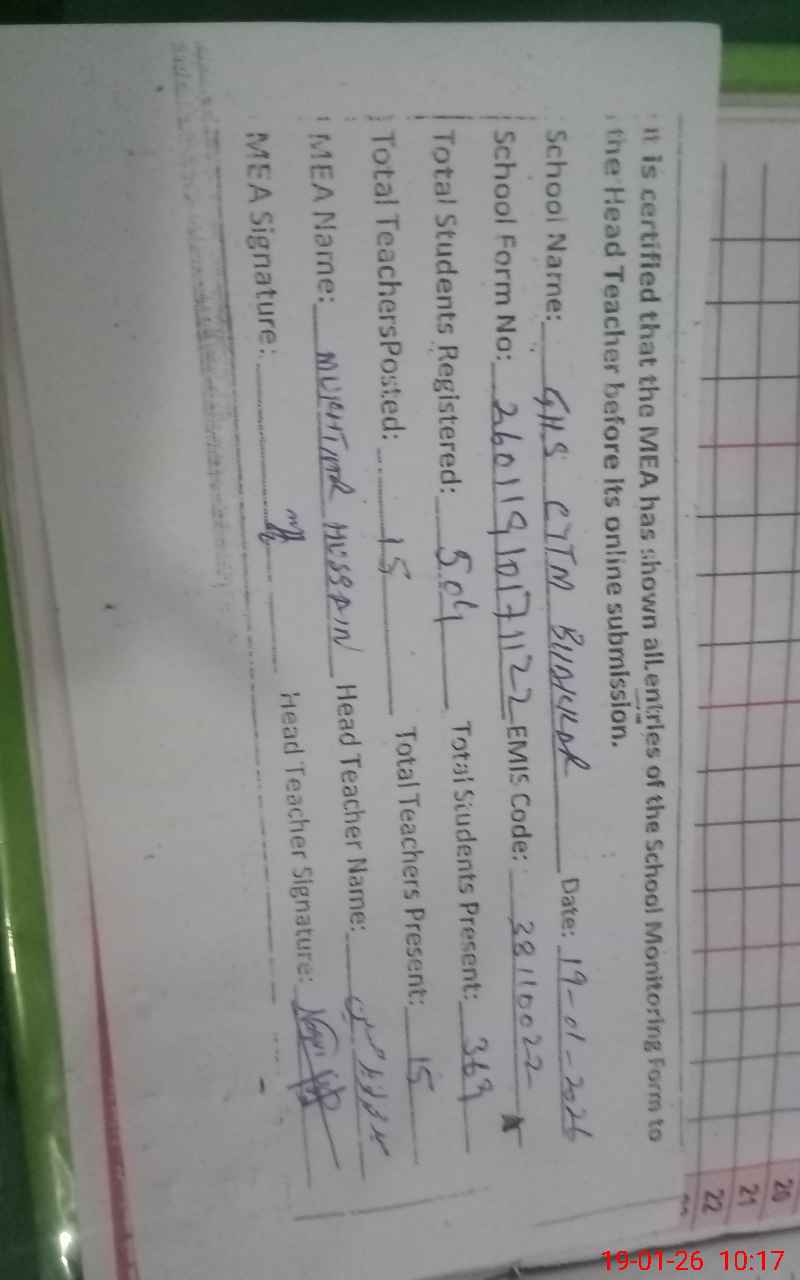 It is certified that the MEA has shown all entries of the School Monitoring Form to
the Head Teacher before its online submission.
School Name: GHS CYTM Date: 19-01-2026
School Form No: 26011910171122 EMIS Code: 38110022
Total Students Registered: 504 Total Students Present: 369
Total TeachersPosted: 15 Total Teachers Present: 15
MEA Name: MUKHTIAR HUSSAIN Head Teacher Name:
MEA Signature: Head Teacher Signature:
20
21
22
19-01-26 10:17